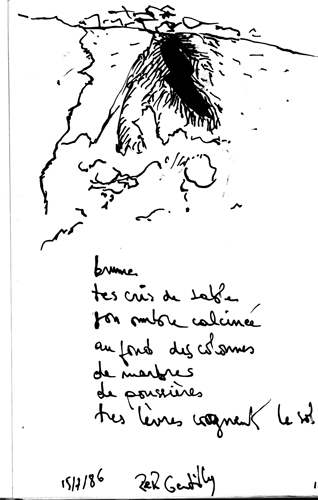 brume
tes cris de sable
ton ombre calcinée
au fond des colonnes
de marbres
de poussières
tes lèvres cognent le sol
15/7/86